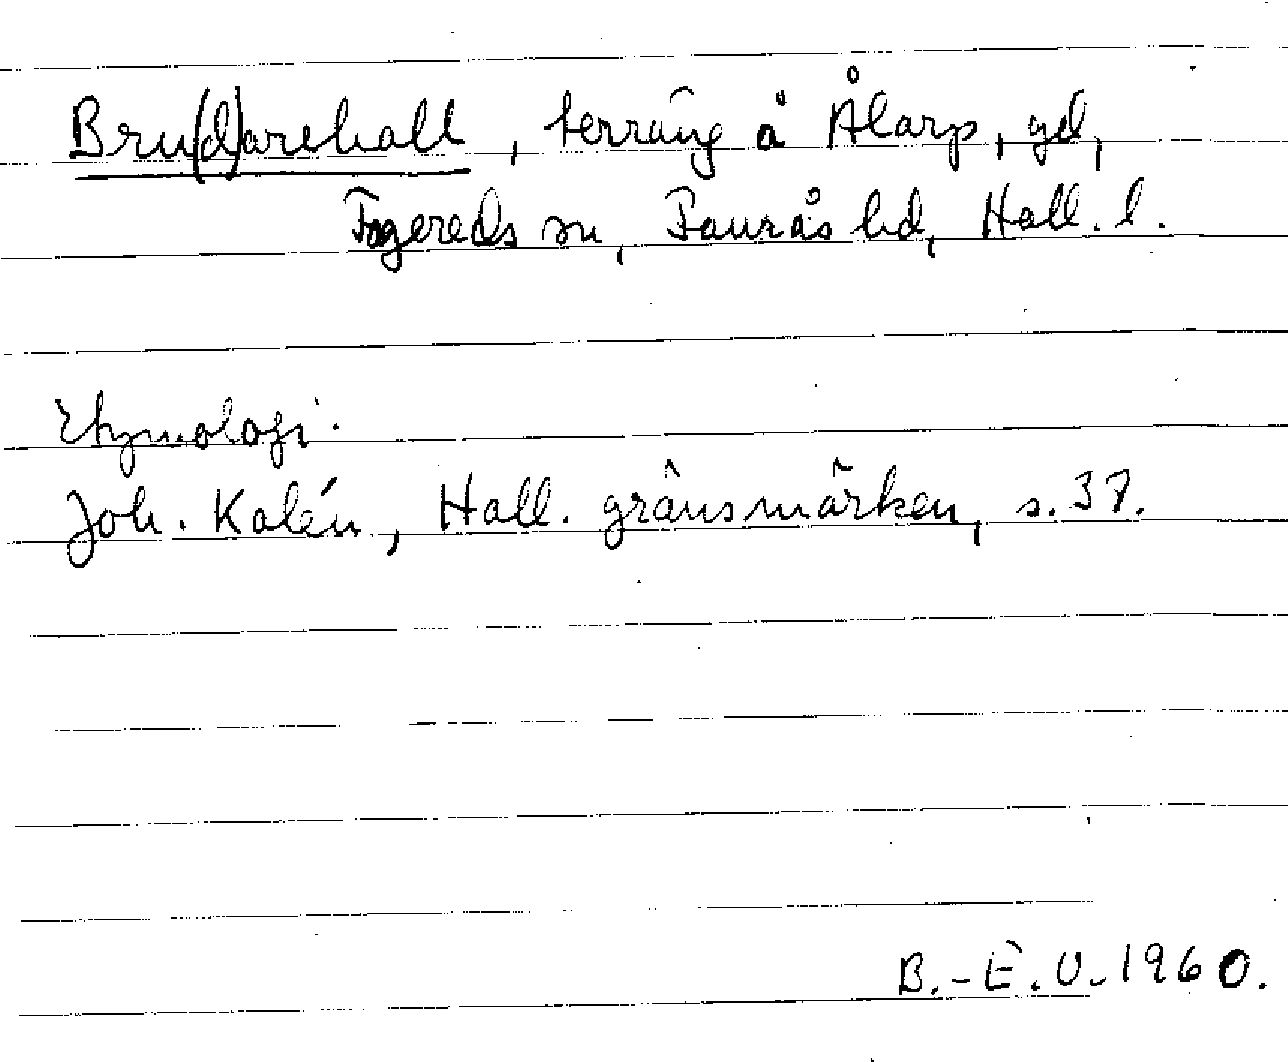 Bru(d)arehall, terräng å Ålarp, gd,
Fagereds sn, Faurås hd, Hall. l.
Etymologi:
Joh. Kalén, Hall. gränsmärken, s. 37.
B.-E. O. 1960.